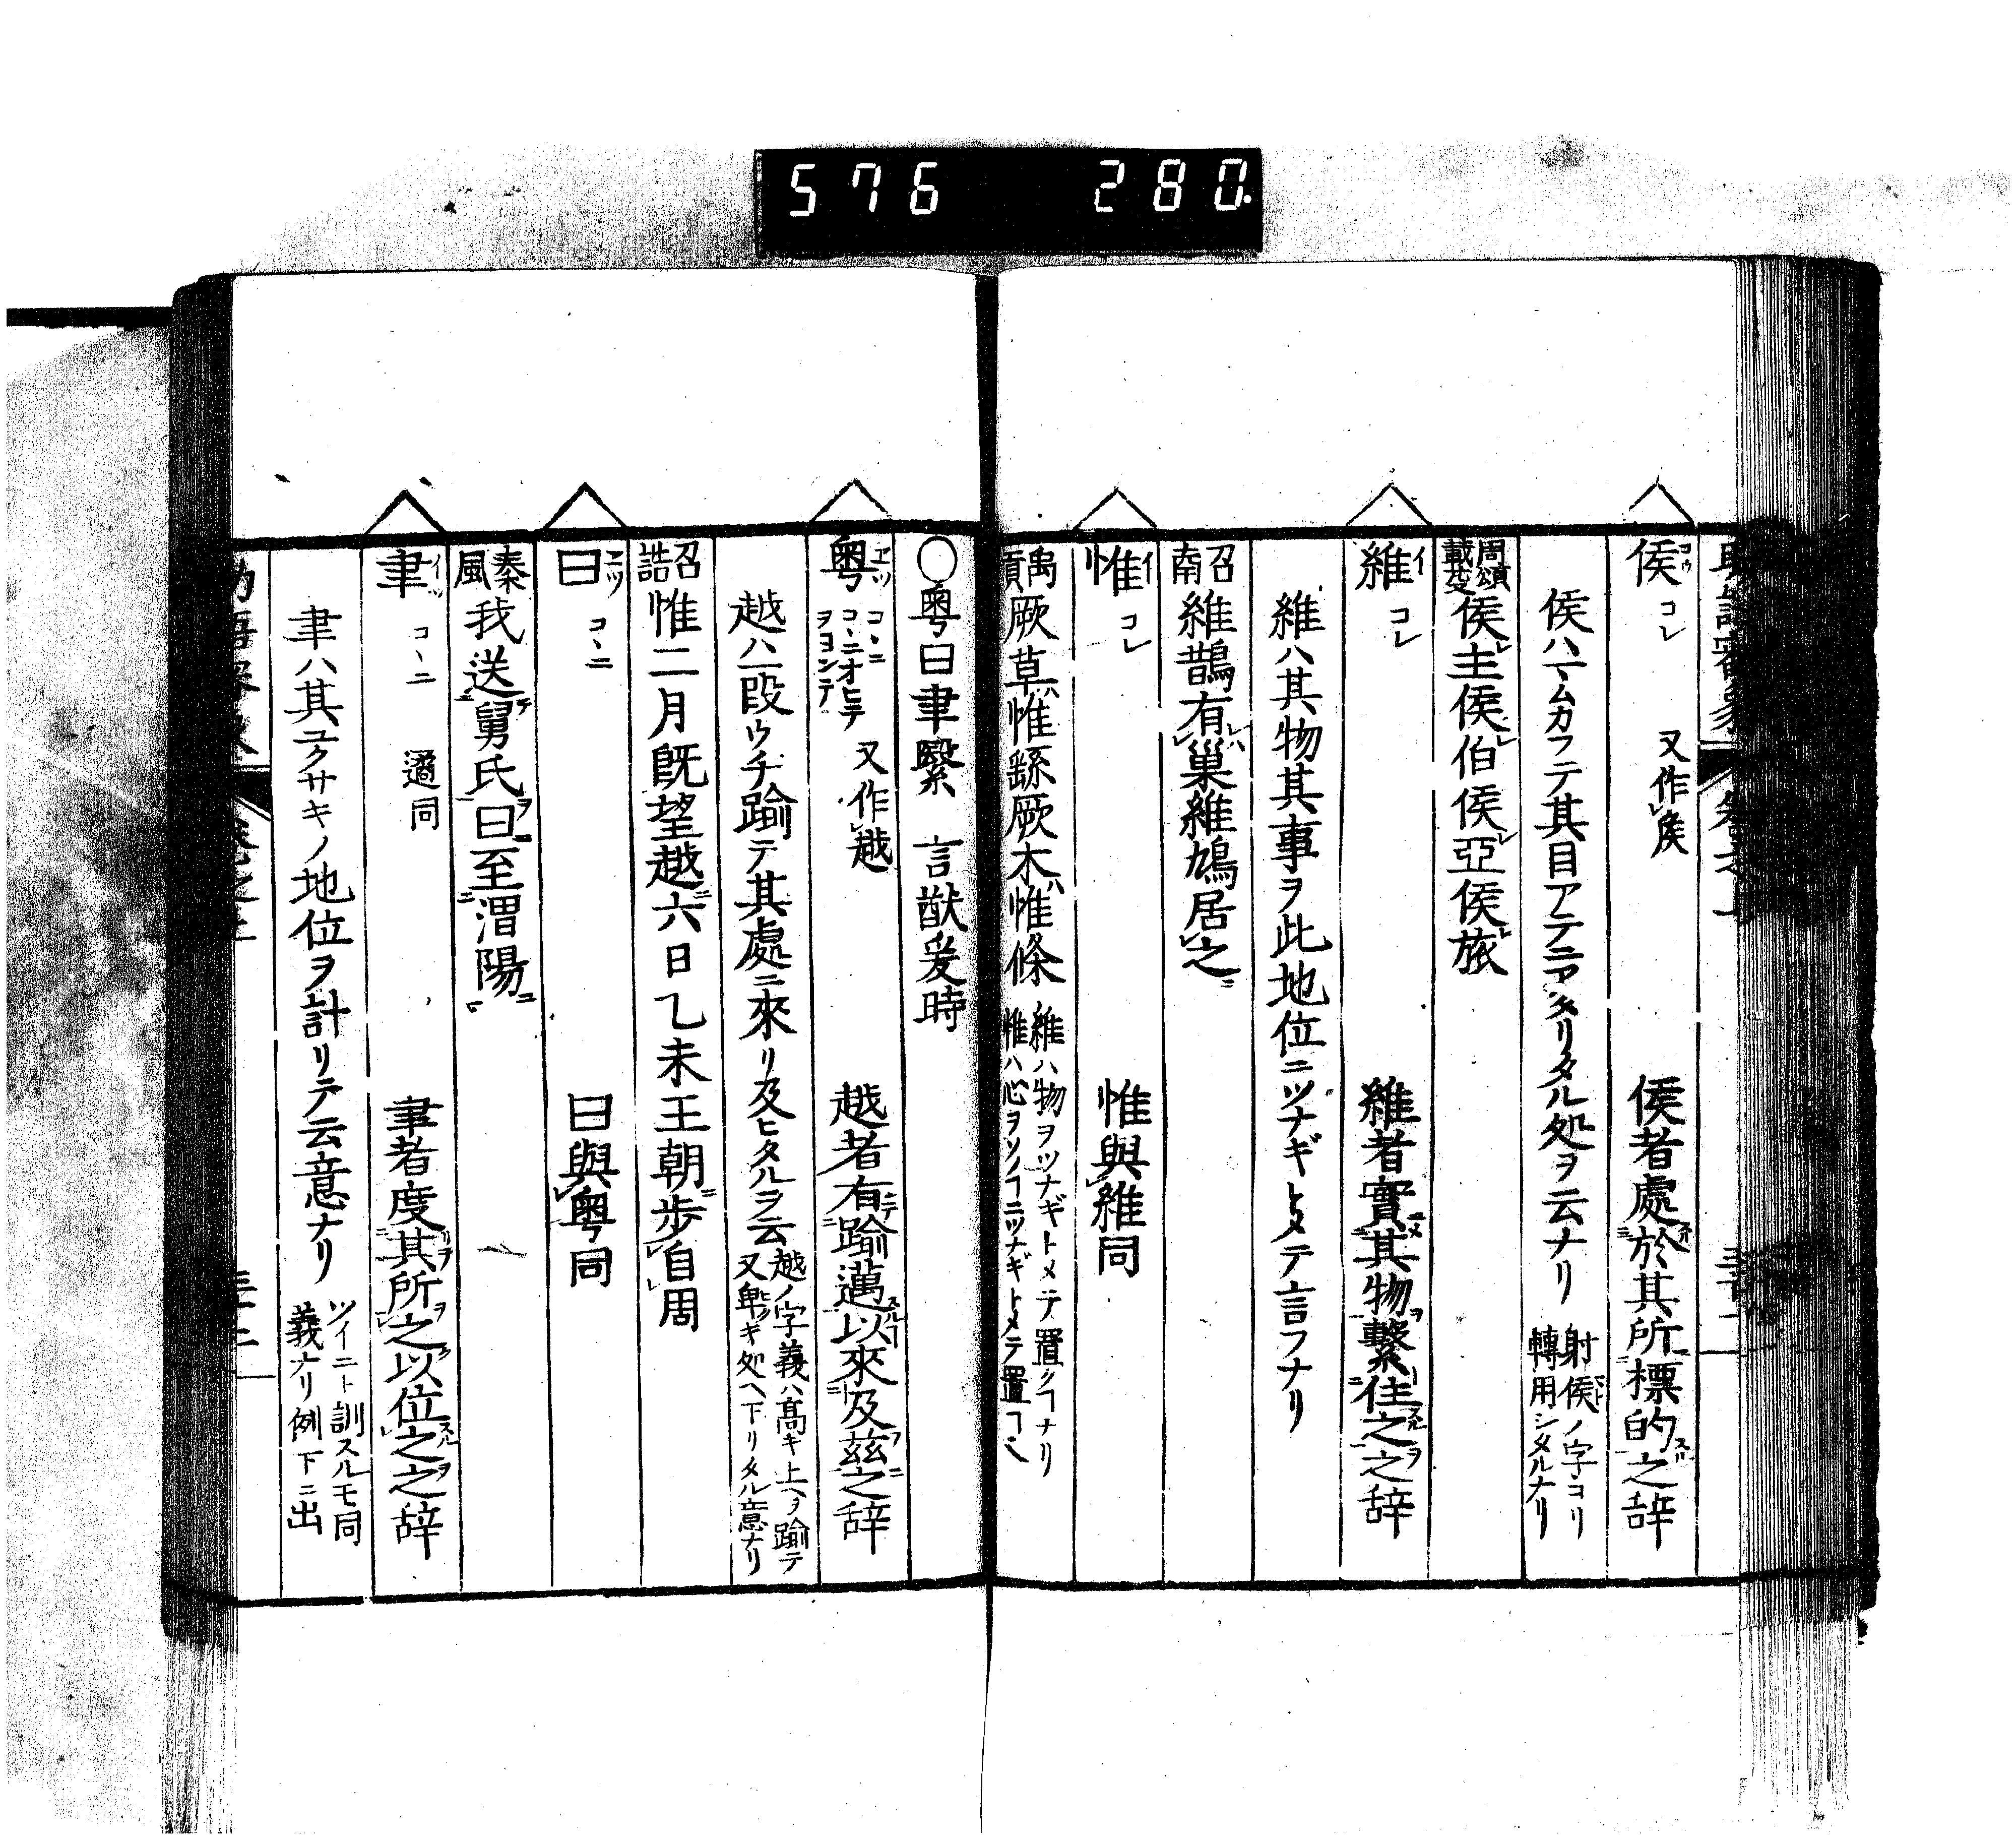 576 280
侯 コウ コレ 又作矦 侯者處於其所標的之辞
侯ハムカフテ其目アテニアタリタル処ヲ云ナリ 射侯ノ字ヨリ
轉用シタルナリ
周頌
載芟 侯主侯伯侯亞侯旅
維 イ コレ 維者實其物繫住之之辞
維ハ其物其事ヲ此地位ニツナギトメテ言フナリ
召
南 維鵲有巢維鳩居之
惟 イ コレ 惟與維同
禹
貢 厥草惟繇厥木惟條 維ハ物ヲツナギトメテ置クヿナリ
惟ハ心ヲソノヿニツナギトメテ置ヿ也
○粤曰聿繄 言猷爰時
粤 ヱツ コヽニ コヽニオヒテ ヲヨンデ 又作越 越者有踰邁以來及茲之辞
越ハ一段ウチ踰テ其處ニ來リ及ヒタルヲ云 越ノ字義ハ高キ上ヘヲ踰テ
又卑キ処ヘ下リタル意ナリ
召
誥 惟二月既望越六日乙未王朝歩自周
曰 ヱツ コヽニ 曰與粤同
秦
風 我送舅氏曰至渭陽
聿 イツ コヽニ 遹同 聿者度其所之以位之之辞
聿ハ其ユクサキノ地位ヲ計リテ云意ナリ ツイニト訓スルモ同
義ナリ例下ニ出